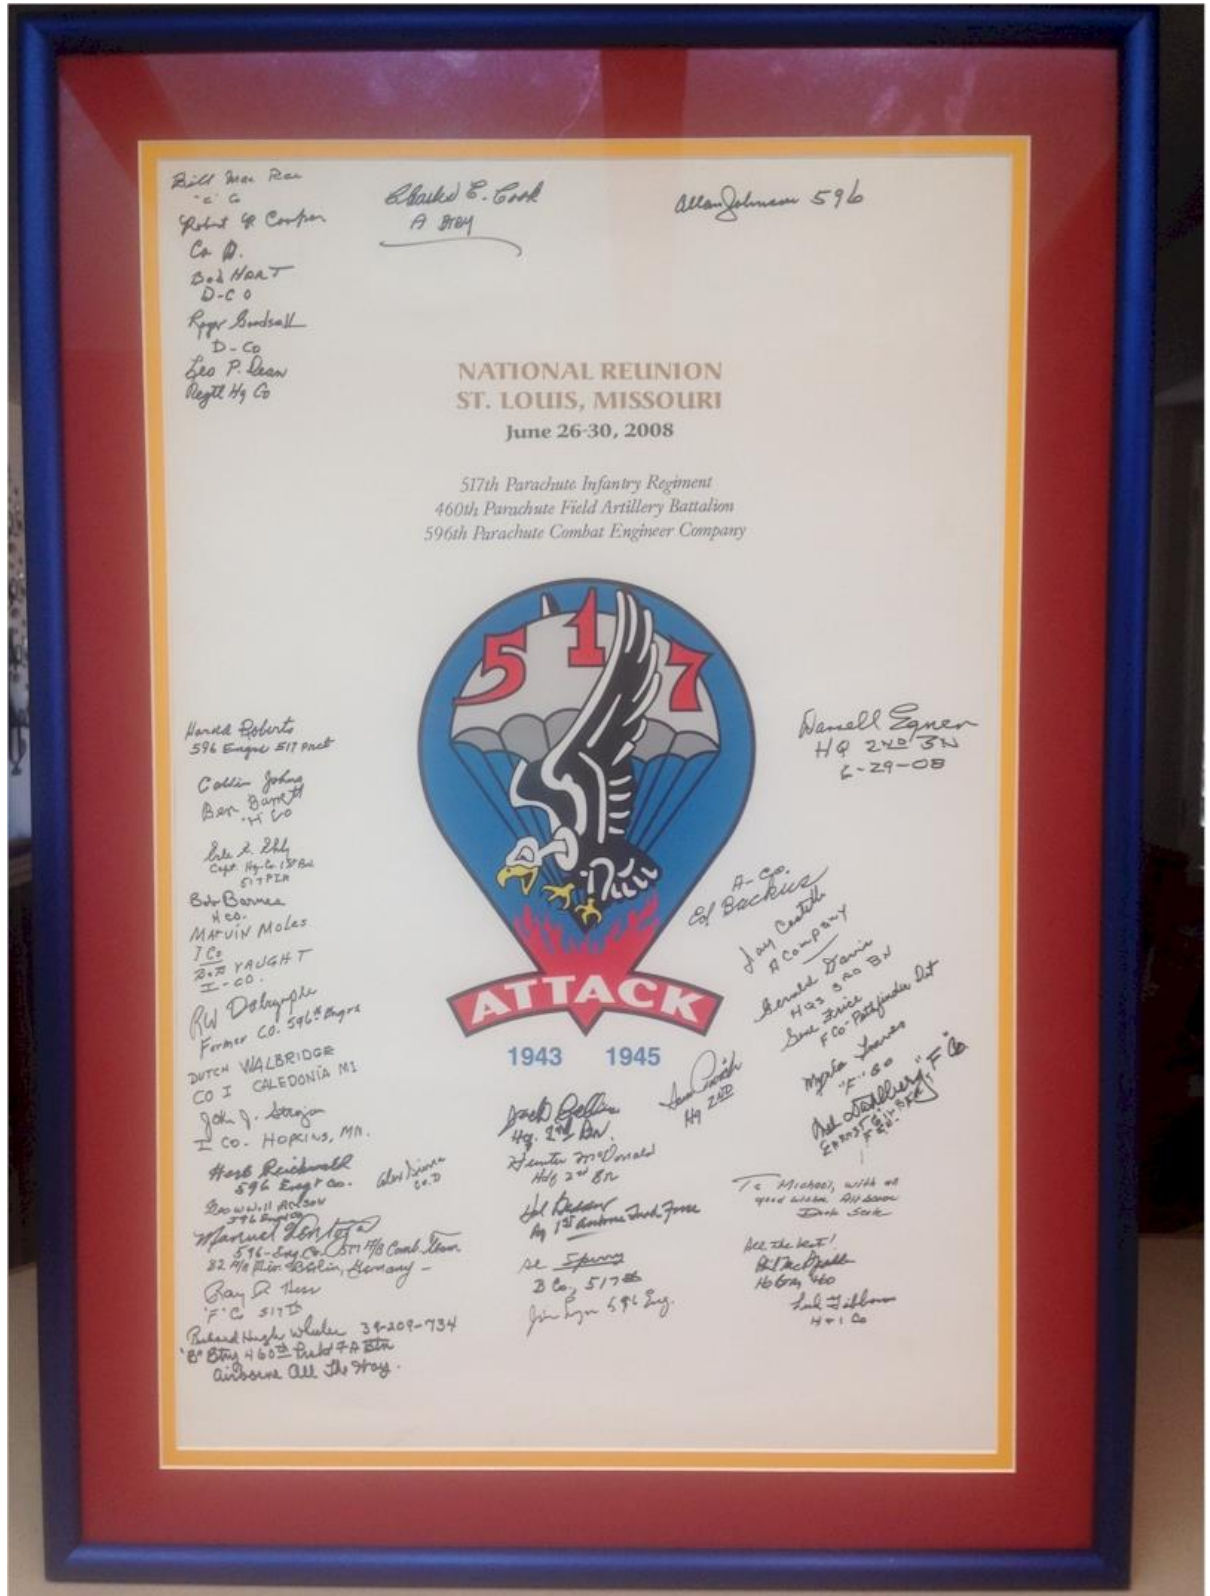 Bill Mac Rae
Co
Robert Cooper
Co D.
Bob HART
D-CO
Roger Goodsell
D-Co
Leo P. Dean
Regtl Hq Co
Charles E. Cook
A Btry
Allan Johnson 596
NATIONAL REUNION
ST. LOUIS, MISSOURI
June 26-30, 2008
517th Parachute Infantry Regiment
460th Parachute Field Artillery Battalion
596th Parachute Combat Engineer Company
517
ATTACK
1943 1945
Harold Roberts
596 Engr 517 PRCT
Johns
Ben Barrett
"H" Co
Capt. Hq. Co. 1st Bn.
517 PIR
Bob Barnes
H CO.
MARVIN Moles
I Co
Bob VAUGHT
I-CO.
RW Dalrymple
Former C.O. 596th Engrs
DUTCH WALBRIDGE
CO I CALEDONIA MI
John J.
I CO. HOPKINS, MN.
Herb Reichwald
596 Engr Co.
596 Engr Co
Alex
Co. D
Manuel
596-Eng. Co. 517 A/B Comb. Team
82 A/B Div. Berlin, Germany -
Ray Hess
"F" Co 517th
Richard Hugh Wheeler 39-209-734
"B" Btry 460th Prcht FA Btn
Airborne All The Way.
Darrell Egner
HQ 2ND BN
6-29-08
A-Co.
Ed Backus
Jay
A Company
Gerald Davis
HQS 3RD BN
Gene Frice
F Co-Pathfinder Det
"F" Co
Mel Dahlberg "F" Co
Sam
Hq 2ND
Jack
Hq. 2nd Bn.
Hunter McDonald
Hdq 2nd Bn
Hal
Hq 1st Airborne Task Force
Al Sperry
B Co, 517th
John 596 Eng.
To Michael, with all
good wishes Airborne
Dick Seitz
All the best!
Hq Btry 460
Gibbons
H + I Co